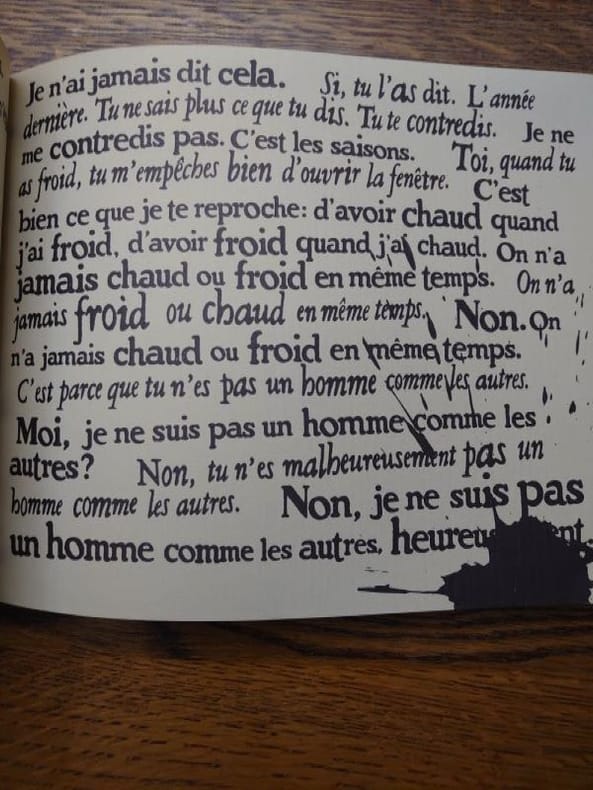 Je n'ai jamais dit cela. Si, tu l'as dit. L'année
dernière. Tu ne sais plus ce que tu dis. Tu te contredis. Je ne
me contredis pas. C'est les saisons. Toi, quand tu
as froid, tu m'empêches bien d'ouvrir la fenêtre. C'est
bien ce que je te reproche: d'avoir chaud quand
j'ai froid, d'avoir froid quand j'ai chaud. On n'a
jamais chaud ou froid en même temps. On n'a
jamais froid ou chaud en même temps. Non. On
n'a jamais chaud ou froid en même temps.
C'est parce que tu n'es pas un homme comme les autres.
Moi, je ne suis pas un homme comme les
autres? Non, tu n'es malheureusement pas un
homme comme les autres. Non, je ne suis pas
un homme comme les autres, heureusement.